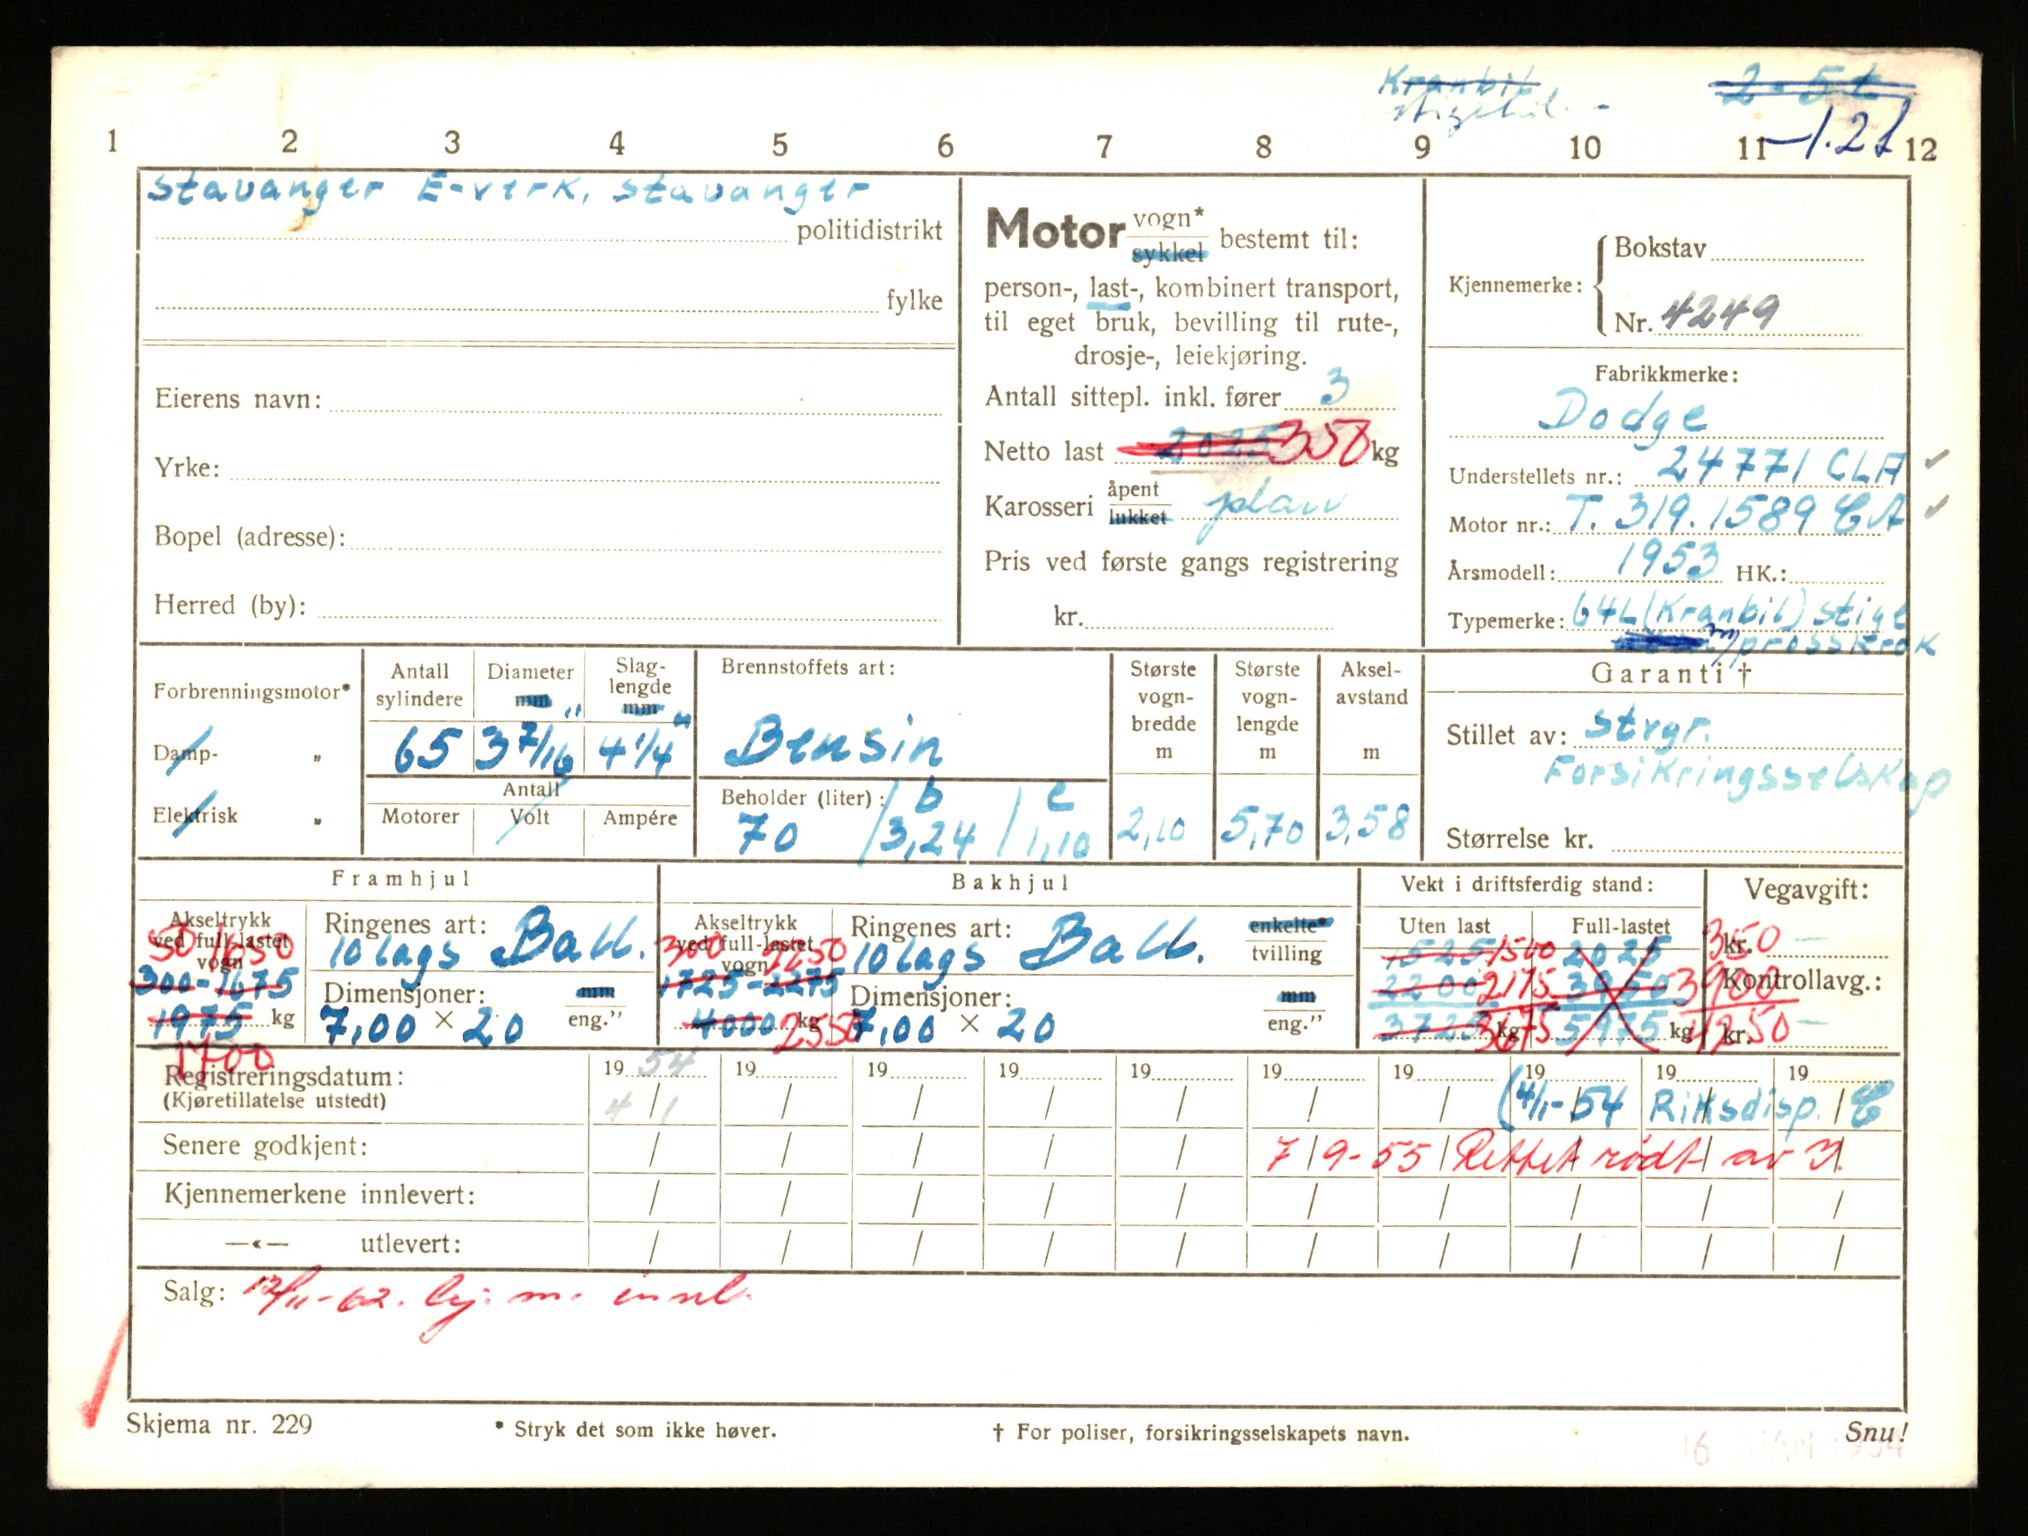 Kranbil 2-5t
stigebil. - -1.2t
1 2 3 4 5 6 7 8 9 10 11 12
Stavanger E-verk, Stavanger
politidistrikt
fylke
Eierens navn:
Yrke:
Bopel (adresse):
Herred (by):
Motor vogn* sykkel bestemt til:
person-, last-, kombinert transport,
til eget bruk, bevilling til rute-,
drosje-, leiekjøring.
Antall sittepl. inkl. fører 3
Netto last 2025 350 kg
Karosseri åpent lukket plan
Pris ved første gangs registrering
kr.
Kjennemerke: Bokstav
Nr. 4249
Fabrikkmerke:
Dodge
Understellets nr.: 24771 CLA
Motor nr.: T. 319.1589 CA
Årsmodell: 1953 HK.:
Typemerke: G4L (Kranbil) stige
m/prosskrok
Forbrenningsmotor*
Damp- „
Elektrisk „
Antall sylindere
65
Diameter mm "
3 7/16
Slag-lengde mm "
4 1/4
Antall
Motorer Volt Ampére
Brennstoffets art:
Bensin
Beholder (liter): b c
70 / 3,24 / 1,10
Største vogn-bredde m
2,10
Største vogn-lengde m
5,70
Aksel-avstand m
3,58
Garanti †
Stillet av: Strgr.
Forsikringsselskap
Størrelse kr.
Framhjul
Akseltrykk ved full-lastet vogn
50 1650
300-1675
1975 kg
1700
Ringenes art:
10 lags Ball.
Dimensjoner: mm
7,00 × 20 eng."
Bakhjul
Akseltrykk ved full-lastet vogn
300 2250
1725-2275
4000 kg 2550
Ringenes art: enkelte*
10 lags Ball. tvilling
Dimensjoner: mm
7,00 × 20 eng."
Vekt i driftsferdig stand:
Uten last Full-lastet
1525 1500 2025 350
2200 2175 3950 3900
3725 kg 3675 5975 kg 4250
Vegavgift:
kr. -
Kontrollavg.:
kr. -
Registreringsdatum: 19 54 19 19 19 19 19 19 19 19 19
(Kjøretillatelse utstedt) 4/1 / / / / / / (4/1-54 Riksdisp. C
Senere godkjent: / / / / / 7/9-55 Rettet rødt av
Kjennemerkene innlevert: / / / / / / / / / /
—«— utlevert: / / / / / / / / / /
Salg: 12/11-62. kj. m. innl.
Skjema nr. 229 * Stryk det som ikke høver. † For poliser, forsikringsselskapets navn. Snu!
16 JAN 1954